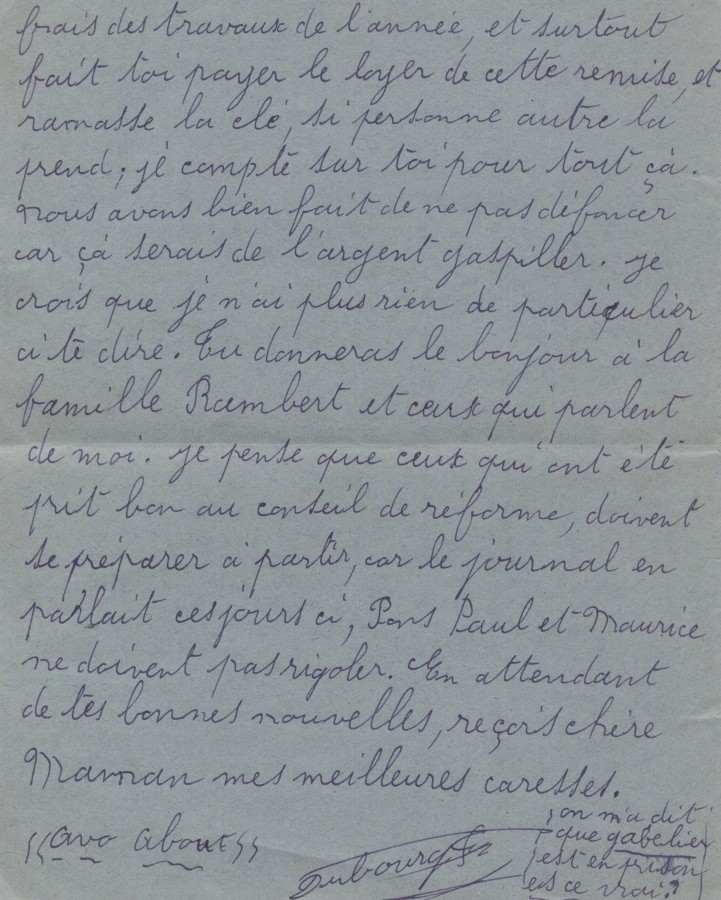 frais des travaux de l'année, et surtout
fait toi payer le loyer de cette remise, et
ramasse la clé, si personne autre la
prend; jé compte sur toi pour tout çà.
nous avons bien fait de ne pas défoncer
car çà serais de l'argent gaspiller. je
crois que jé n'ai plus rien de particulier
a te dire. Tu donneras le bonjour à la
famille Rambert et ceux qui parlent
de moi. je pense que ceux qui ont été
prit bon au conseil de réforme, doivent
se préparer à partir, car le journal en
parlait ces jours ci, Pons Paul et Maurice
ne doivent pas rigoler. En attendant
de tes bonnes nouvelles, reçois chère
Maman mes meilleures caresses.
avo about
Dubourg
on m'a dit
que gabelier
est en prison
es ce vrai?